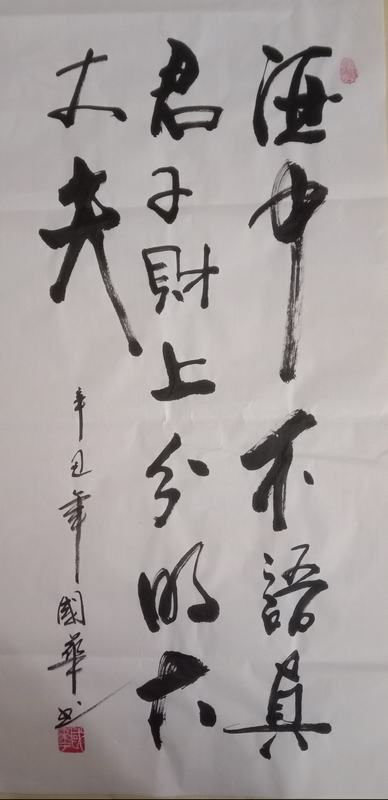 酒中不語真
君子財上分明大
丈夫
辛丑年國華书